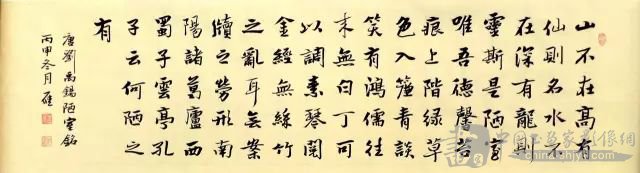 山不在高有
仙則名水不
在深有龍則
靈斯是陋室
唯吾德馨苔
痕上階綠草
色入簾青談
笑有鴻儒往
來無白丁可
以調素琴閱
金經無絲竹
之亂耳無案
牘之勞形南
陽諸葛廬西
蜀子雲亭孔
子云何陋之
有
唐劉禹錫陋室銘
丙申冬月雁
中国书画家影像网